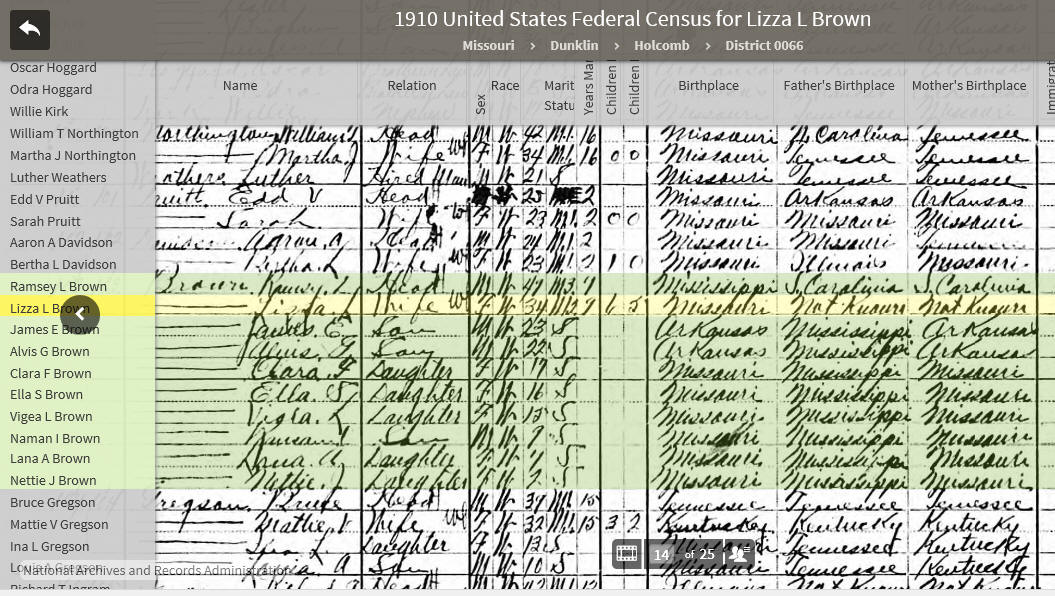 1910 United States Federal Census for Lizza L Brown
Missouri > Dunklin > Holcomb > District 0066
Name Relation Sex Race Marit Statu Years Ma Children Children Birthplace Father's Birthplace Mother's Birthplace Immigrat
Oscar Hoggard
Odra Hoggard
Willie Kirk
William T Northington William T Head M W 42 M1 16 Missouri N. Carolina Tennessee
Martha J Northington Martha J Wife F W 34 M1 16 0 0 Missouri Tennessee Tennessee
Luther Weathers Luther Hired Man M W 21 S Missouri Tennessee Tennessee
Edd V Pruitt Edd V Head 25 2 Missouri Arkansas Arkansas
Sarah Pruitt Sarah Wife F W 23 M1 2 0 0 Missouri Missouri Missouri
Aaron A Davidson Aaron A Head M W 24 M1 2 Missouri Missouri
Bertha L Davidson Bertha L Wife F W 23 M1 2 1 0 Missouri Illinois Missouri
Ramsey L Brown Brown Ramsey L Head M W 47 Mississippi S. Carolina S. Carolina
Lizza L Brown Wife F W 34 M2 9 6 5 Missouri Not Known Not Known
James E Brown James E Son M W 23 S Arkansas Mississippi Arkansas
Alvis G Brown Alvis G Son M W 22 S Arkansas Mississippi Arkansas
Clara F Brown Clara F Daughter F W 17 S Missouri Mississippi Missouri
Ella S Brown Ella S Daughter F W 16 S Missouri Mississippi Missouri
Vigea L Brown Daughter F W 13 S Missouri Mississippi Missouri
Naman I Brown Son M W 9 S Missouri Mississippi Missouri
Lana A Brown Daughter F W S Missouri Mississippi Missouri
Nettie J Brown Nettie J Daughter F W 2 S Missouri Mississippi Missouri
Bruce Gregson Gregson Bruce Head M W 39 M1 15 Tennessee Tennessee Tennessee
Mattie V Gregson Mattie V Wife F W 32 M1 15 3 2 Kentuckey Kentucky Kentucky
Ina L Gregson Daughter F W S Tennessee Kentucky
14 of 25
National Archives and Records Administration
Richard T Ingram